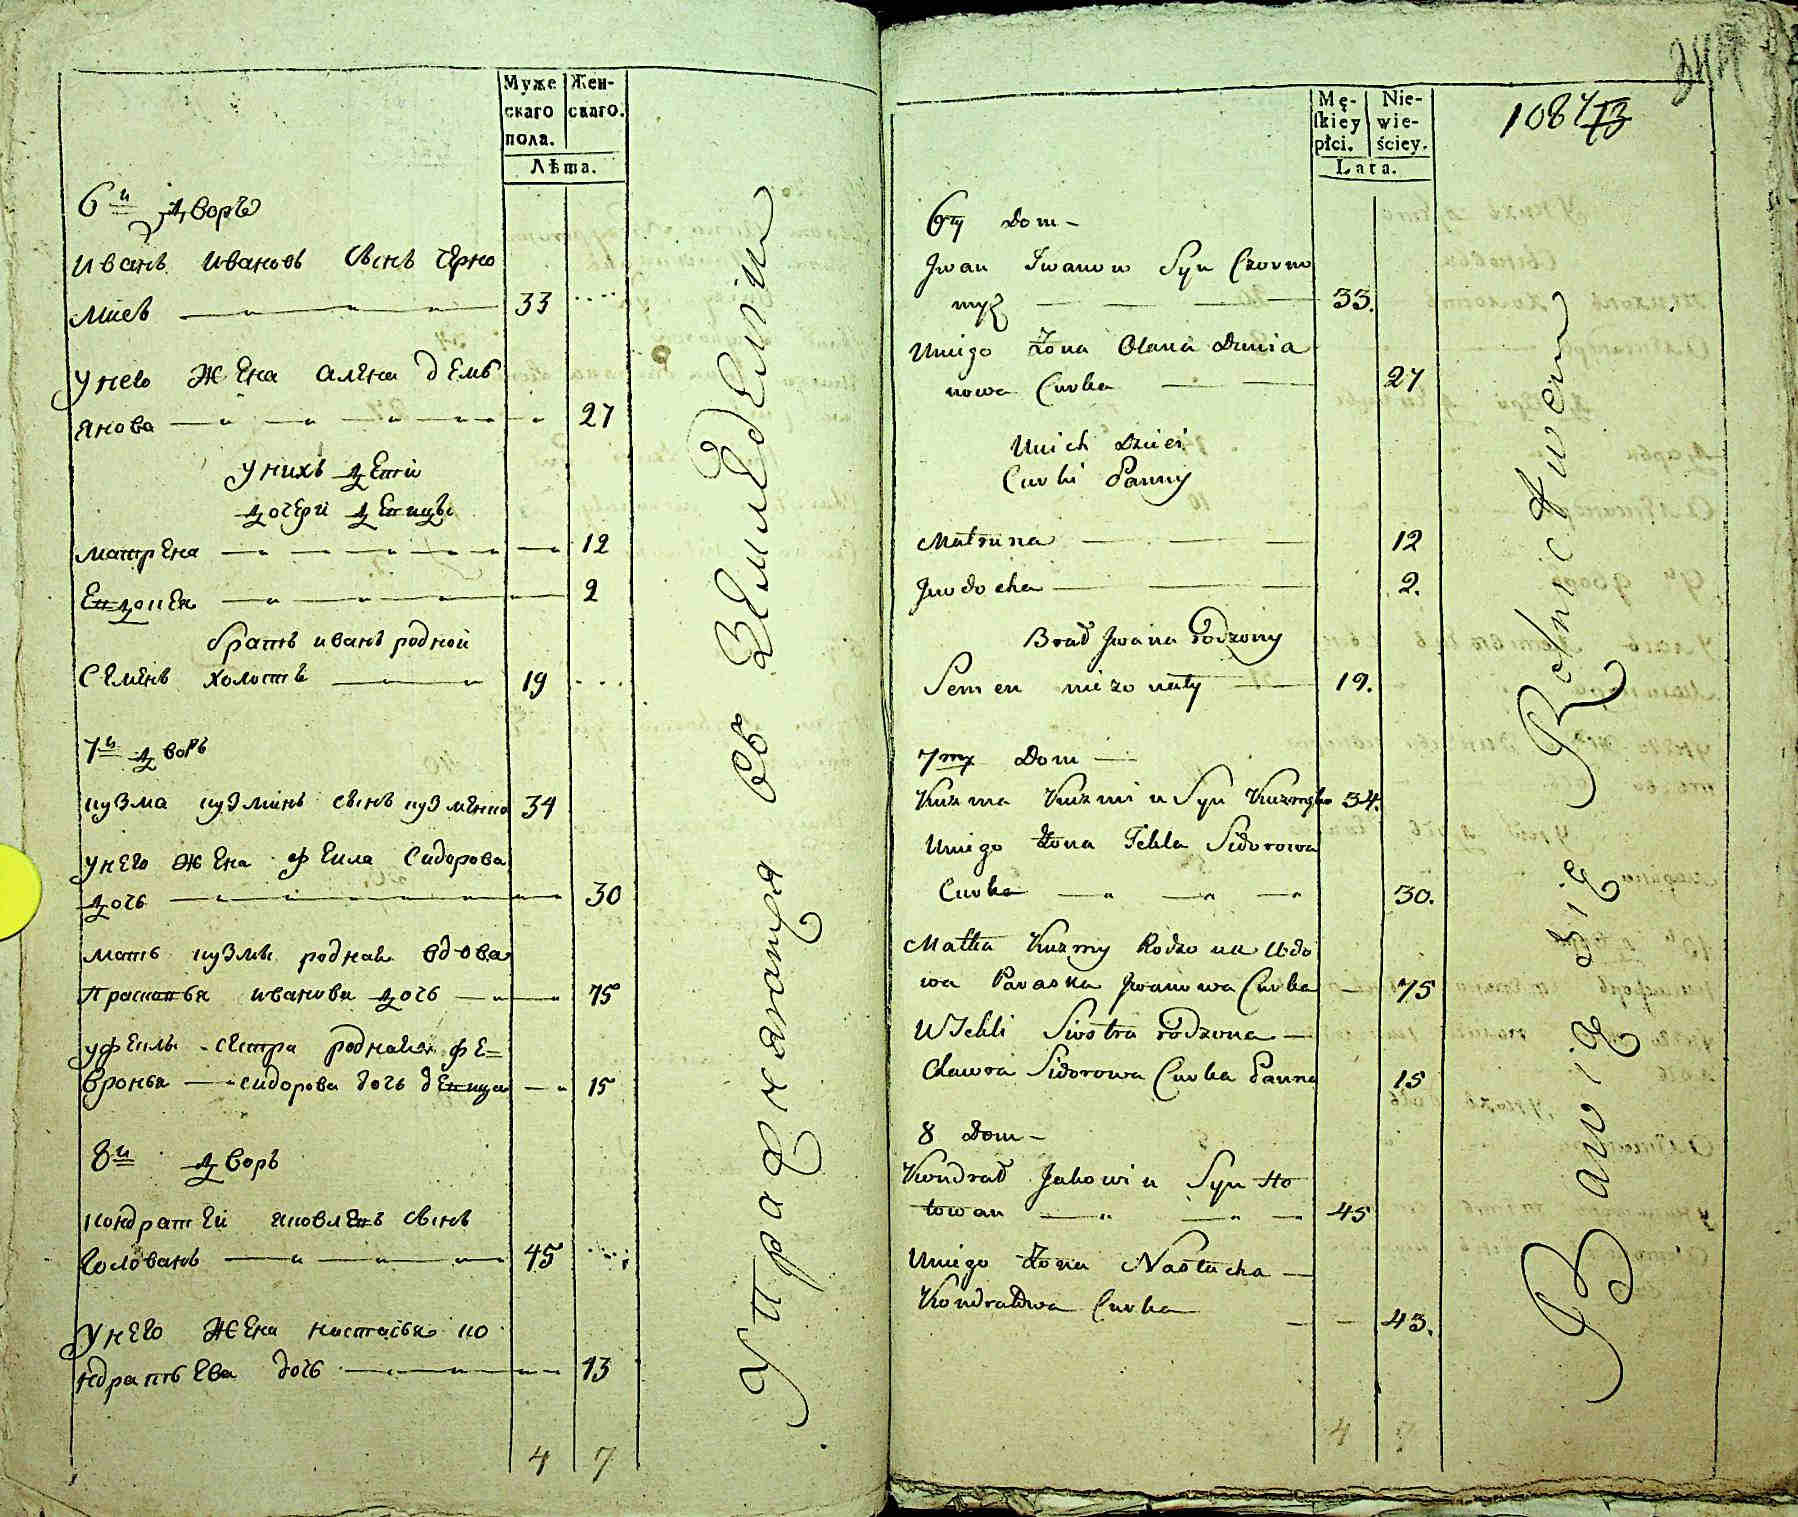 Муже
скаго
пола.
Жен-
скаго.
Лѣта.
6й дворъ
Иванъ Ивановъ сынъ Черно
мысъ 33
У него жена Алена Демь
янова 27
У нихъ дети
дочери девицы
Матрена 12
Евдокея 2
братъ Иванъ родной
Семенъ холостъ 19
7й дворъ
Кузма Кузминъ сынъ Кузменко 34
У него жена Фекла Сидорова
дочь 30
Мать Кузмы родная вдова
Прасковья Иванова дочь 75
У Феклы сестра родная Фе=
вронья Сидорова дочь девица 15
8й дворъ
Кондратей Яковлевъ сынъ
Голованъ 45
У него жена Настасья Ко
ндратьева дочь 43
4 7
Упражняются въ Земледелии
Mę-
ſkiey
płci.
Nie-
wie-
ściey.
Lata.
1087
6ty Dom
Jwan Iwanow Syn Czorno
myz 33.
Uniego Żona Olana Dimia
nowa Curka 27
Unich Dzieci
Curki Panny
Matruna 12
Jwdocha 2.
Brad Jwana rodzony
Semen niezonaty 19.
7my Dom
Kuzma Kuzmin Syn Kuzmenko 34.
Uniego Żona Tekla Sidorowa
Curka 30.
Matka Kuzmy Rodzona Udo
wa Paraska Jwanowa Curka 75
U Tekli Siostra rodzona
Chawra Sidorowa Curka Panna 15
8 Dom
Kondrad Jakowin Syn Ho
lowan 45
Uniego Żona Nastucha
Kondradowa Curka 43.
4 7
Bawią się Rolnictwem